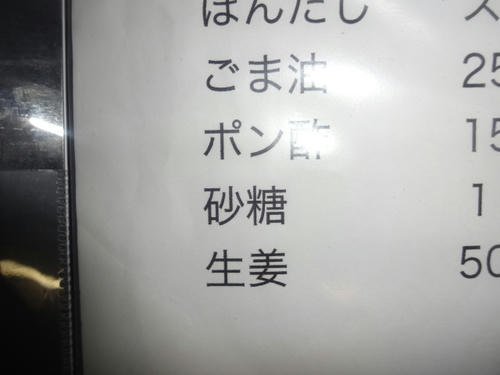 ほんだし ス
ごま油 25
ポン酢 15
砂糖 1
生姜 50